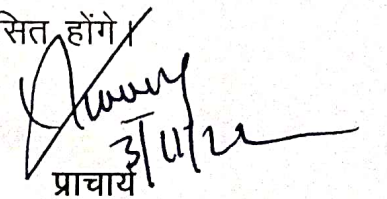 सित होंगे।
3/11/22
प्राचार्य